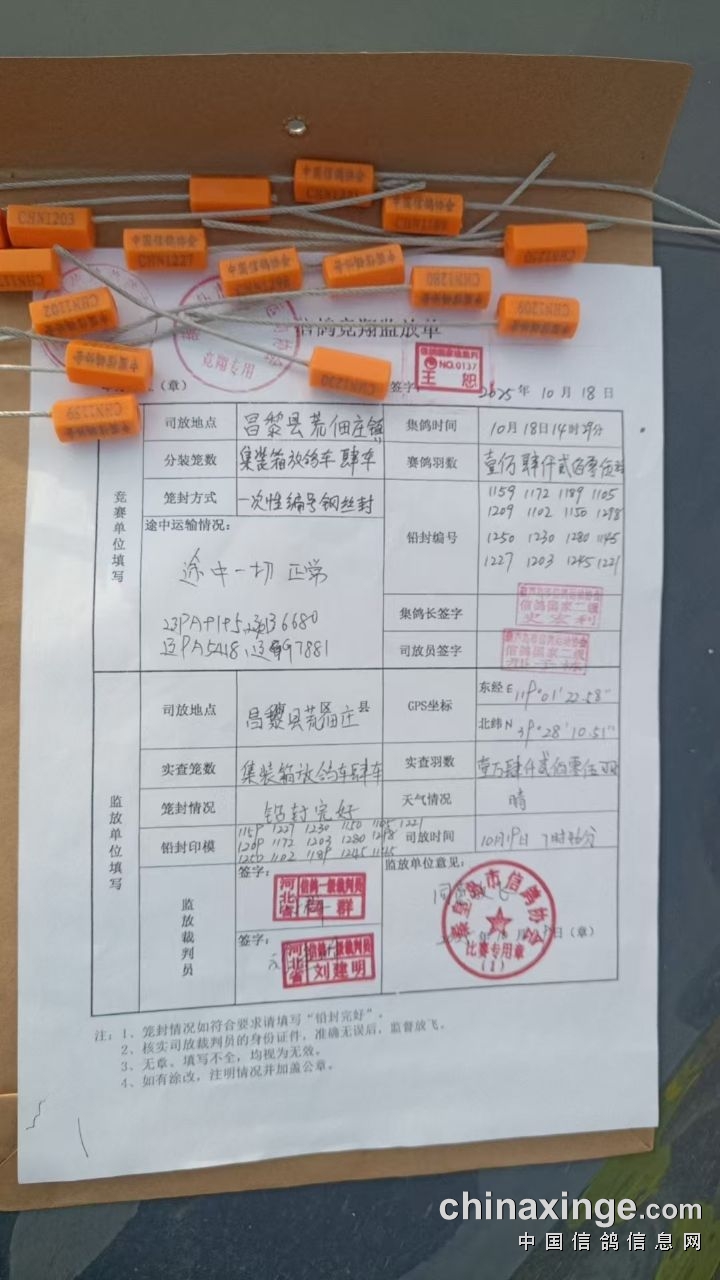 中国信鸽协会
CHN1203
中国信鸽协会
CHN1227
中国信鸽协会
中国信鸽协会
中国信鸽协会
CHN1280
CHN1250
CHN1209
中国信鸽协会
CHN1202
中国信鸽协会
中国信鸽协会
CHN1230
CHN1159
信鸽竞翔监放单
竞翔专用
（章）
签字：
信鸽国家级裁判
NO.0137
王恕
2025年10月18日
竞赛单位填写
司放地点 昌黎县荒佃庄镇 集鸽时间 10月18日14时29分
分装笼数 集装箱放鸽车肆车 赛鸽羽数
笼封方式 一次性编号钢丝封 铅封编号
1159 1172 1189 1105
1209 1102 1150 1298
1250 1230 1280 1145
1227 1203 1245 1221
途中运输情况：
途中一切正常
集鸽长签字
信鸽国家二级
史宏利
司放员签字
信鸽国家二级
监放单位填写
司放地点 昌黎县荒佃庄 区 县 GPS坐标 东经E 119°01′22.58″
北纬N 39°28′10.51″
实查笼数 集装箱放鸽车肆车 实查羽数 壹万肆仟贰佰零伍羽
笼封情况 铅封完好 天气情况 晴
铅封印模
1159 1227 1230 1150 1105 1221
1209 1172 1203 1280 1298
1250 1102 1189 1245 1145
司放时间 10月19日 7时46分
监放裁判员
签字：
河北省
信鸽一级裁判员
群
签字：
河北省
信鸽一级裁判员
刘建明
监放单位意见：
同意放飞
秦皇岛市信鸽协会
比赛专用章
（1）
年10月19日（章）
注：1、笼封情况如符合要求请填写“铅封完好”。
2、核实司放裁判员的身份证件，准确无误后，监督放飞。
3、无章、填写不全，均视为无效。
4、如有涂改，注明情况并加盖公章。
chinaxinge.com
中国信鸽信息网